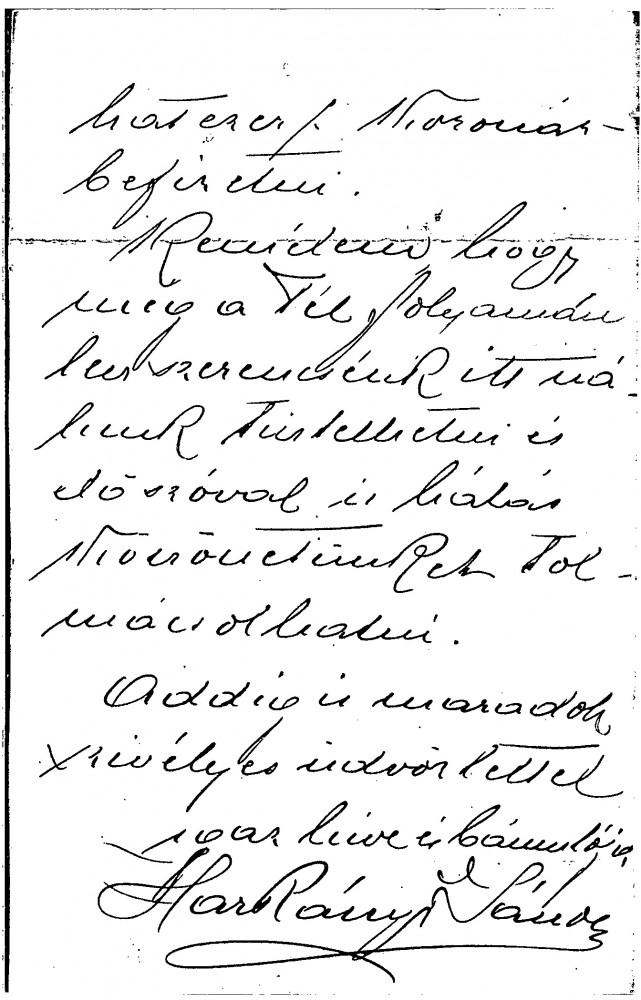 hatezer f. Koronár-
befizetni.
Remélem hogy
még a Tél folyamán
lesz szerencsénk itt ná-
lunk Tisztelhetni és
élőszóval is hálás
Köszönetünket Tol-
mácsolhatni.
Addig is maradok
szivélyes üdvözlettel
igaz hive és bámulója
Harkányi János